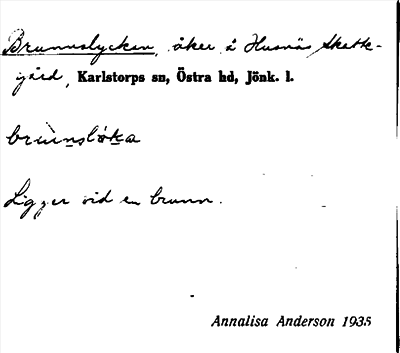 Brunnslyckan, åker å Husnäs skatte-
gård, Karlstorps sn, Östra hd, Jönk. l.
brùnslö̀ka
Ligger vid en brunn.
Annalisa Anderson 1935